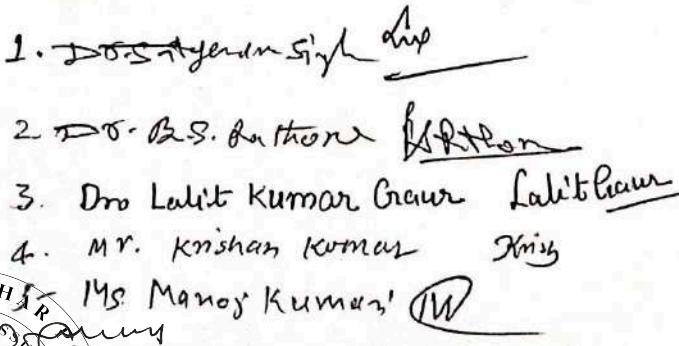 1. Dr. Satyendra Singh
2 Dr. B.S. Rathore BSRathore
3. Dro Lalit Kumar Gaur Lalit Gaur
4. Mr. Krishan Kumar Krish
5- Ms Manoj Kumari
HAR